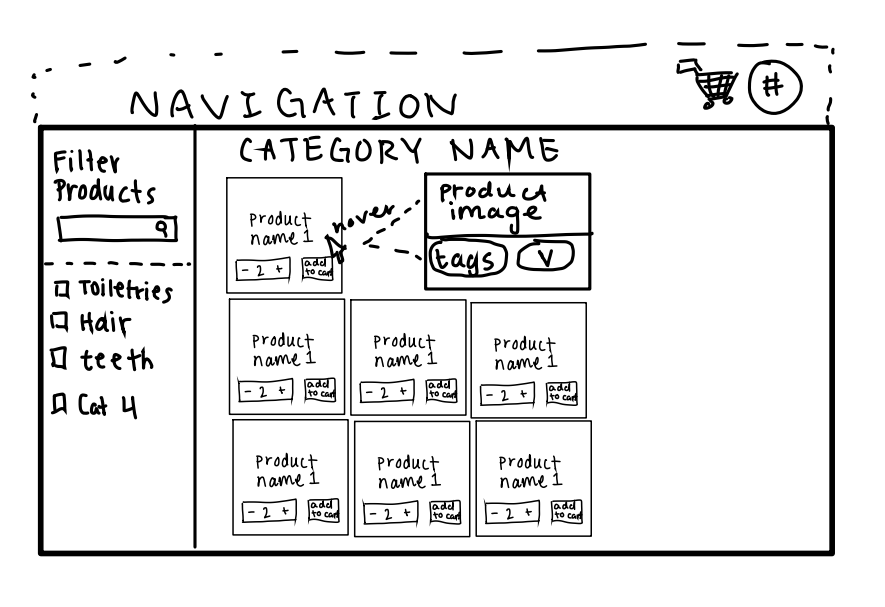 NAVIGATION
#
Filter
Products
Toiletries
Hair
teeth
Cat 4
CATEGORY NAME
Product
name 1
- 2 +
add
to cart
hover
product
image
tags
V
Product
name 1
- 2 +
add
to cart
Product
name 1
- 2 +
add
to cart
Product
name 1
- 2 +
add
to cart
Product
name 1
- 2 +
add
to cart
Product
name 1
- 2 +
add
to cart
Product
name 1
- 2 +
add
to cart